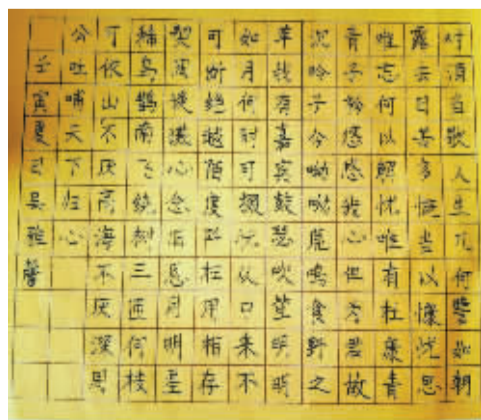 对酒当歌人生几何譬如朝
露去日苦多慨当以慷忧思
唯忘何以解忧唯有杜康青
青子衿悠悠我心但为君故
沉吟子今呦呦鹿鸣食野之
苹我有嘉宾鼓瑟吹笙明明
如月何时可掇忧从中来不
可断绝越陌度阡枉用相存
契阔谈讌心念旧恩月明星
稀乌鹊南飞绕树三匝何枝
可依山不厌高海不厌深周
公吐哺天下归心
壬寅夏吴雅馨